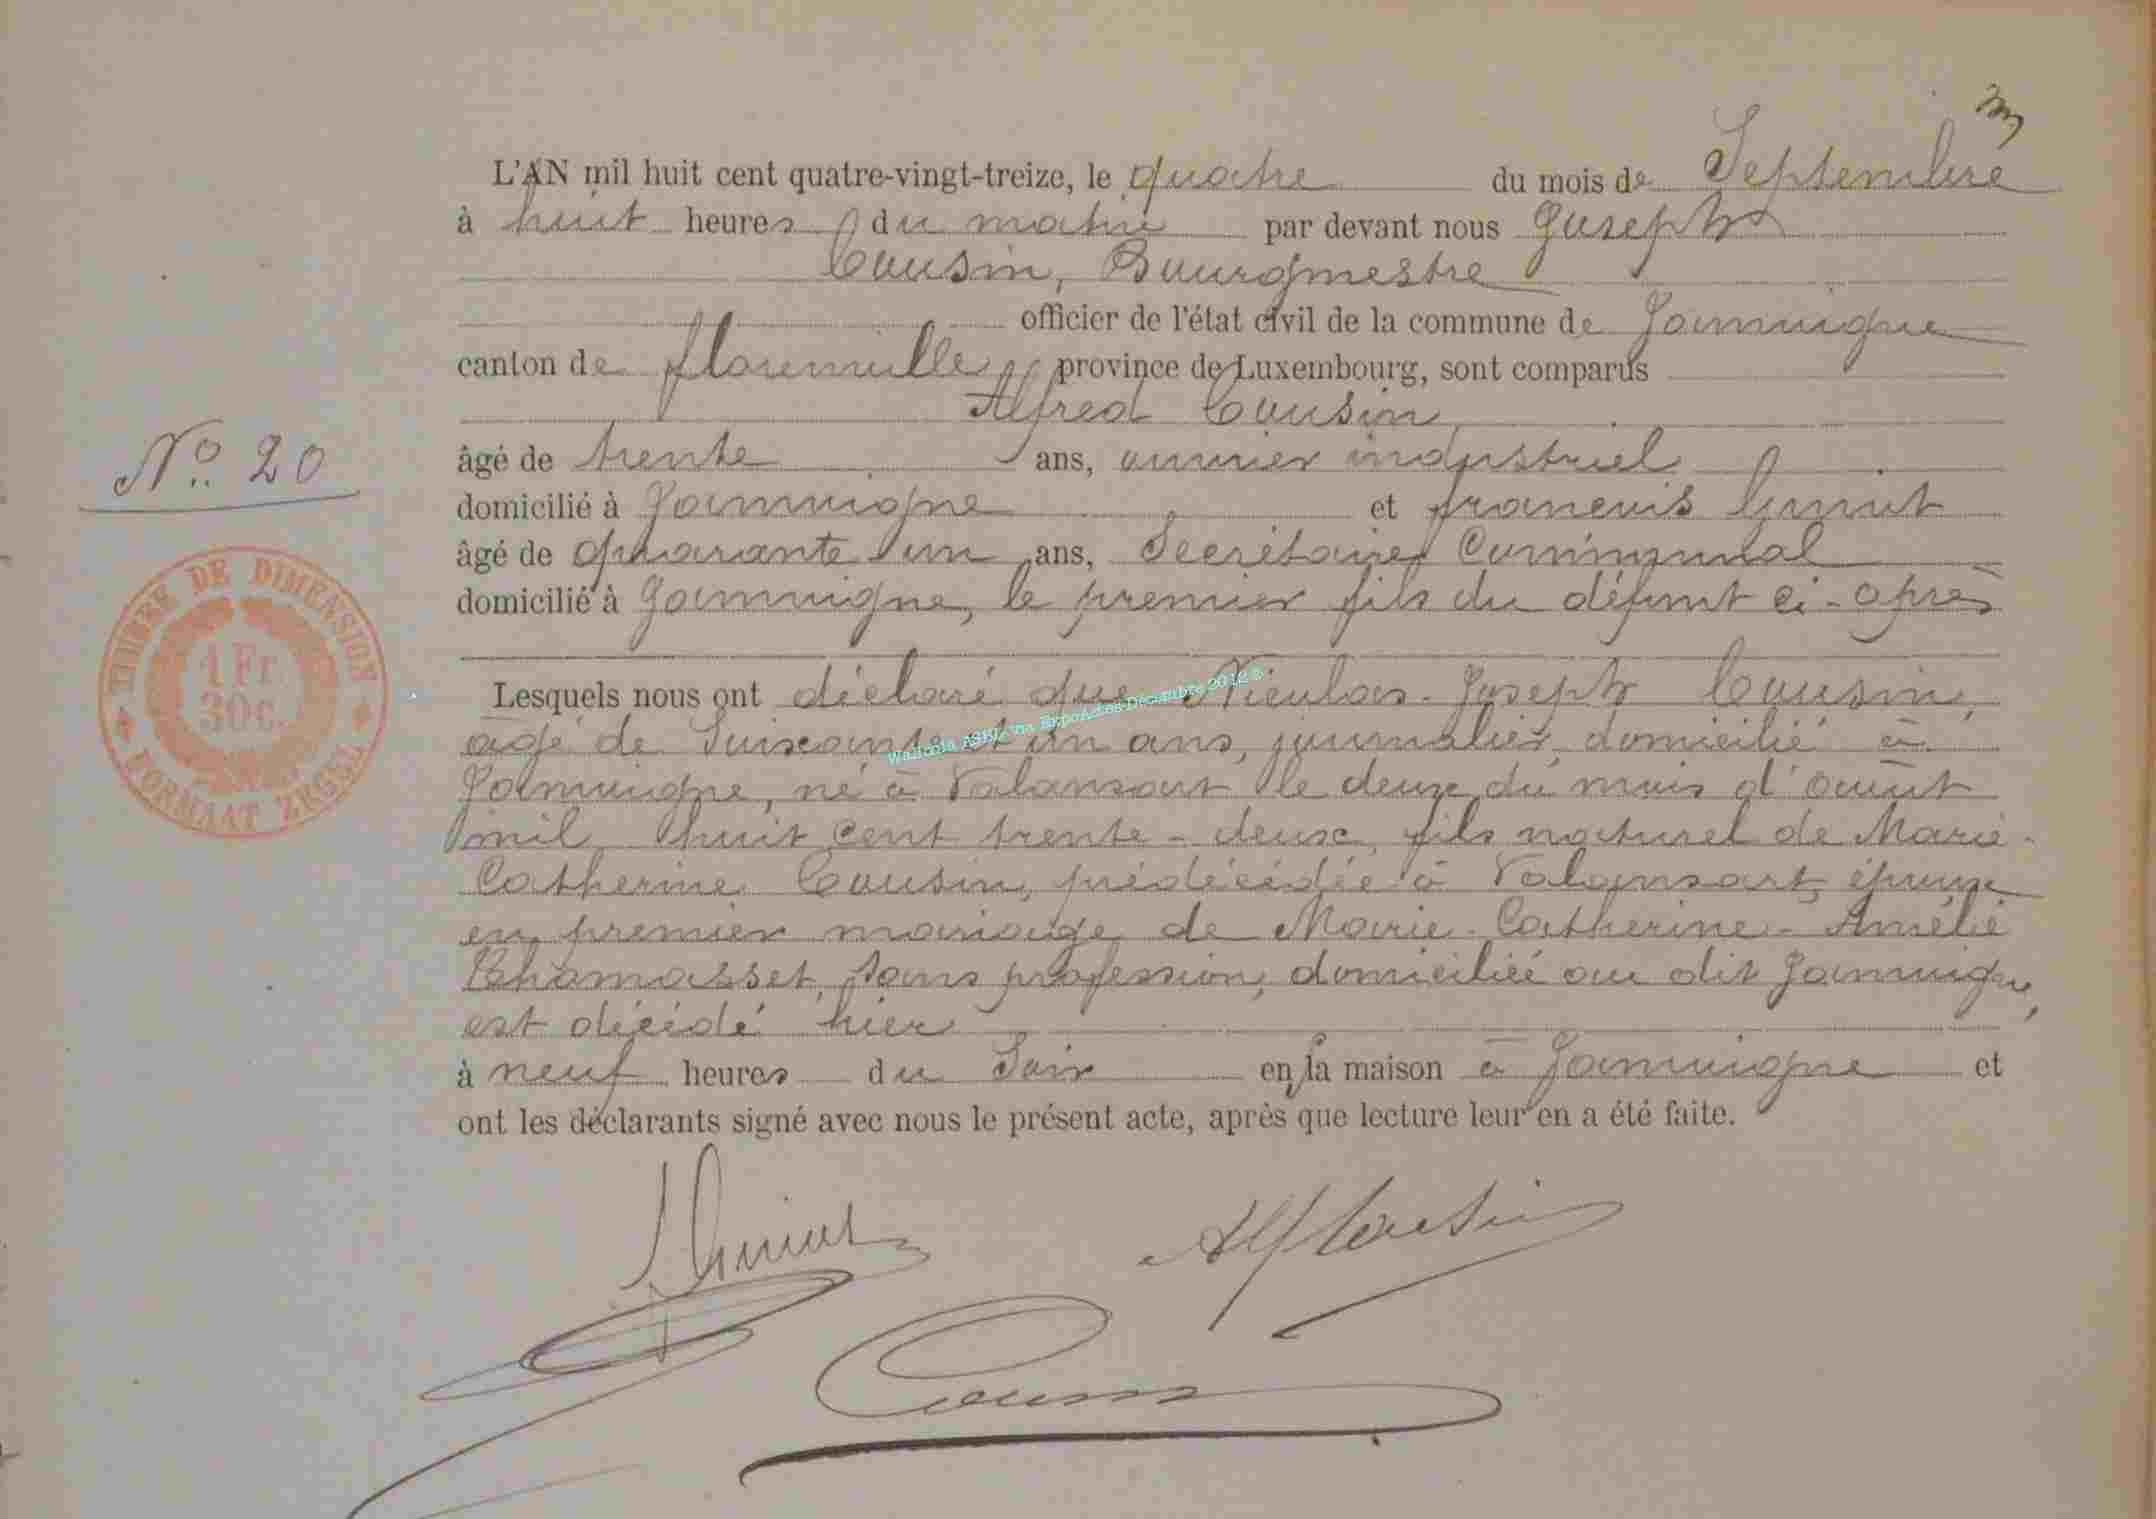 L'AN mil huit cent quatre-vingt-treize, le quatre du mois de Septembre
à huit heures du matin par devant nous Joseph
Cousin, Bourgmestre
officier de l'état civil de la commune de Jamoigne
canton de florenville province de Luxembourg, sont comparus
Alfred Cousin
âgé de trente ans, ouvrier industriel
N° 20
domicilié à Jamoigne et francois
âgé de quarante un ans, Secrétaire Communal
domicilié à Jamoigne, le premier fils du défunt ci-après
TIMBRE DE DIMENSION
1 Fr
30c.
FORMAAT ZEGEL
Lesquels nous ont déclaré que Nicolas-Joseph Cousin,
âgé de Soixante et un ans, journalier, domicilié à
Jamoigne, né à Valansart le deux du mois d'août
mil huit cent trente-deux, fils naturel de Marie-
Catherine Cousin, prédécédée à Valansart, époux
en premier mariage de Marie-Catherine-Amélie
Chamasset, sans profession, domiciliée au dit Jamoigne,
est décédé hier
à neuf heures du Soir en sa maison à Jamoigne et
ont les déclarants signé avec nous le présent acte, après que lecture leur en a été faite.
Wallonia ASBL via ExpoActes Décembre 2012 ©
Alf Cousin
Cousin